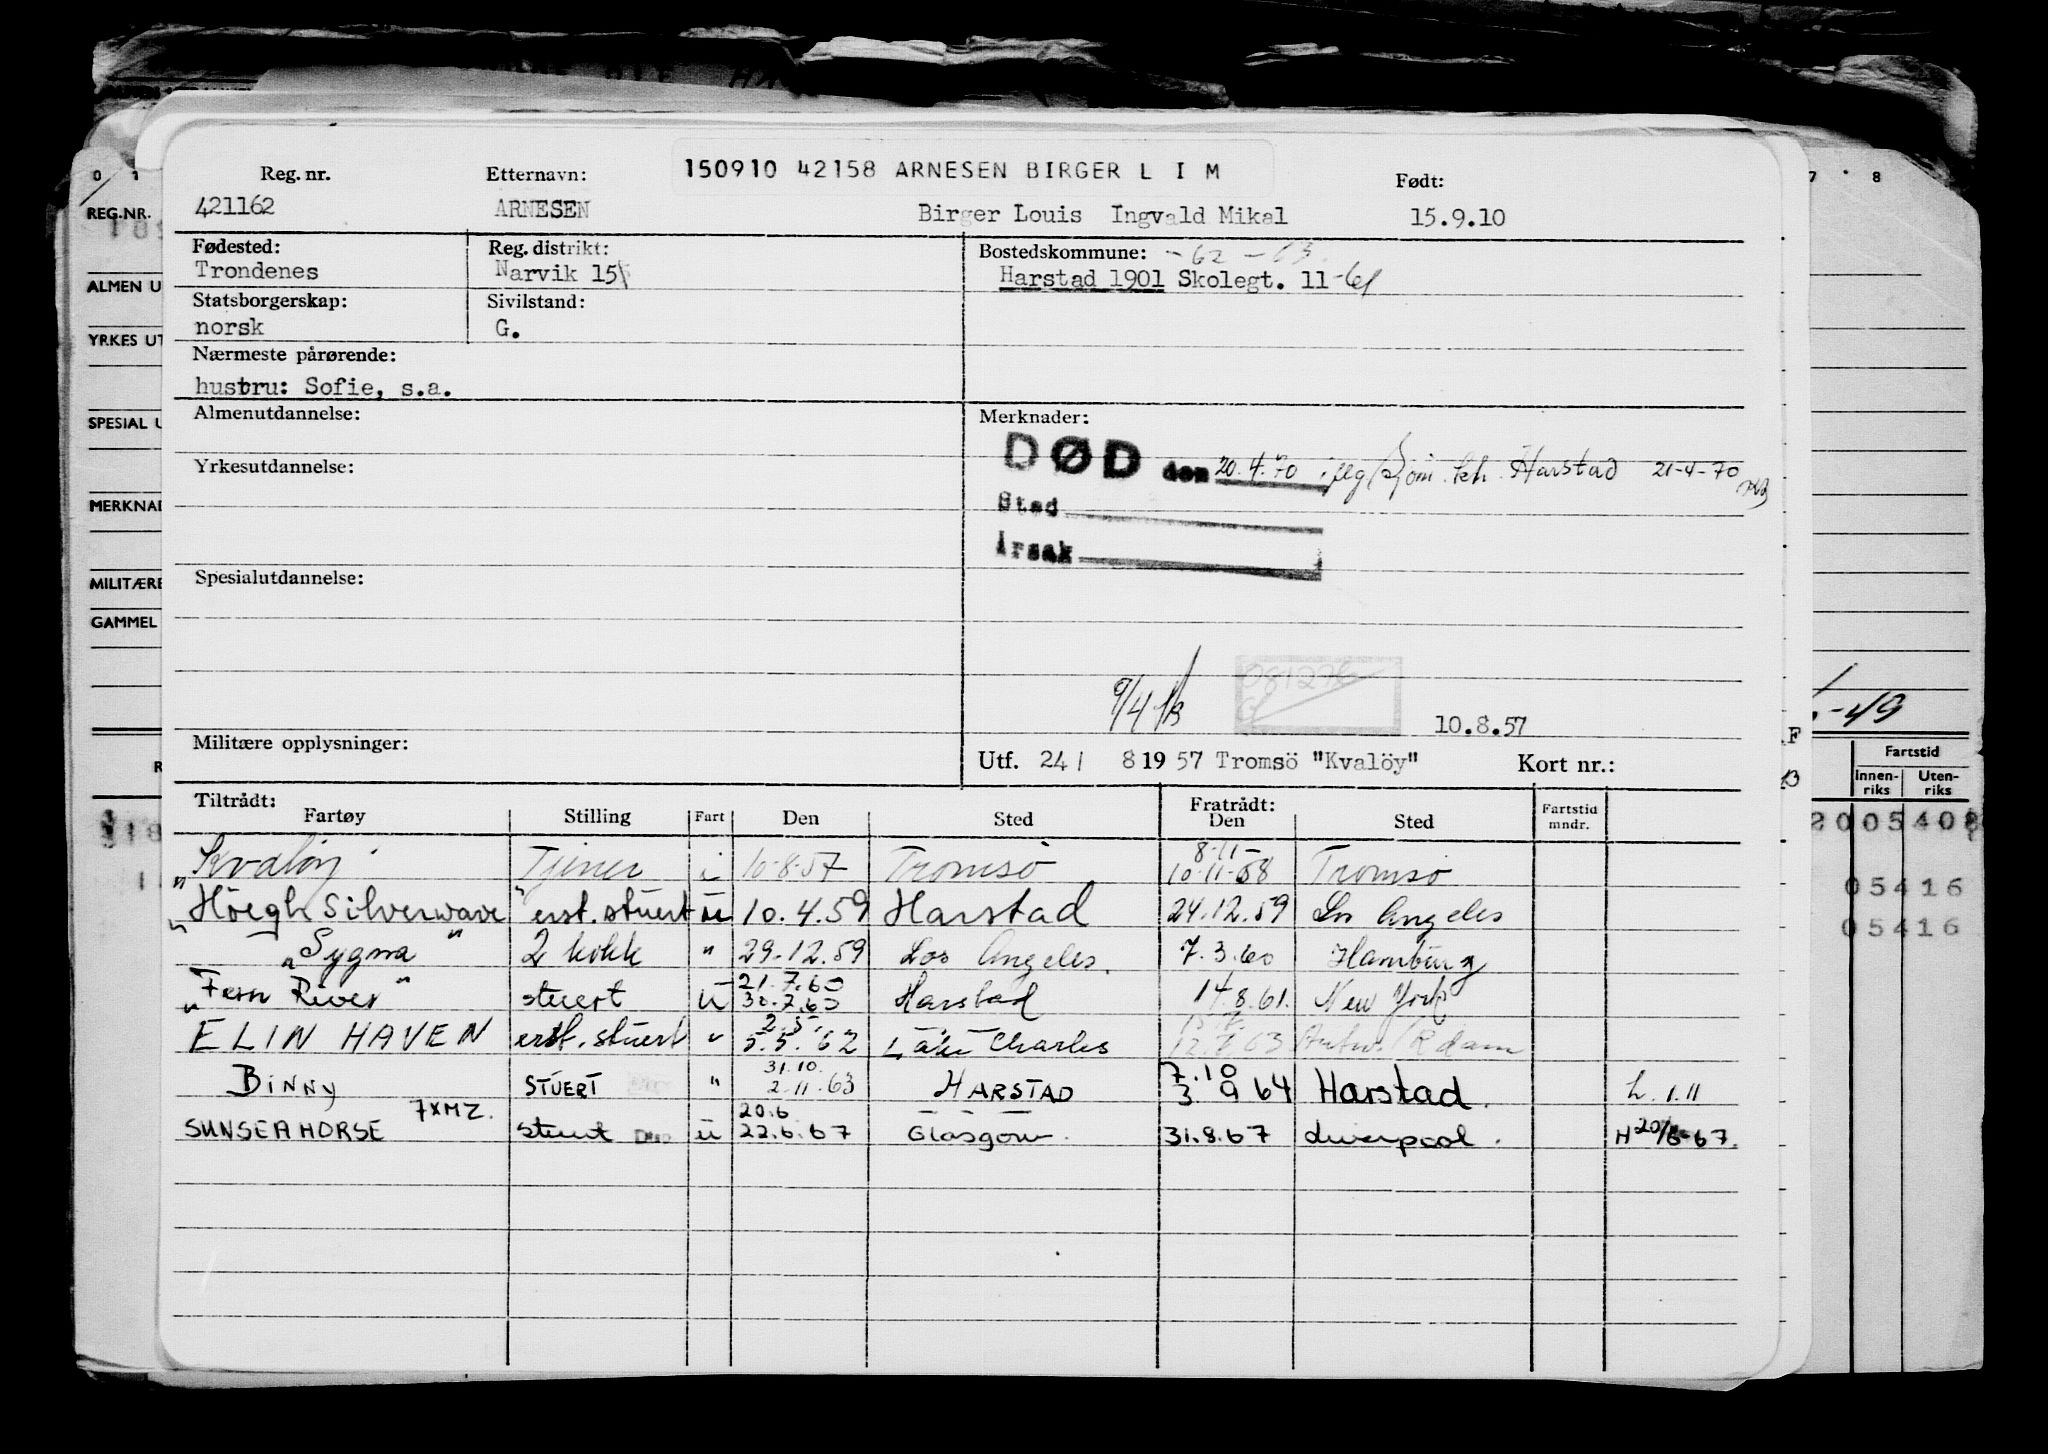 150910 42158 ARNESEN BIRGER L I M
Reg. nr. Etternavn: Født:
421162 ARNESEN Birger Louis Ingvald Mikal 15.9.10
Fødested: Reg. distrikt: Bostedskommune: -62 -63
Trondenes Narvik 15 Harstad 1901 Skolegt. 11 -61
Statsborgerskap: Sivilstand:
norsk G.
Nærmeste pårørende:
hustru: Sofie, s.a.
Almenutdannelse: Merknader:
DØD den 20.4.70 Harstad 21-4-70
Yrkesutdannelse:
Sted
Årsak
Spesialutdannelse:
081276
9/4
10.8.57
Militære opplysninger: Utf. 24/ 8 19 57 Tromsö "Kvalöy" Kort nr.:
Tiltrådt: Fratrådt:
Fartøy Stilling Fart Den Sted Den Sted Fartstid mndr.
8-11-
Kvaløy Tjener i 10-8-57 Tromsö 10-11-58 Tromsö
"Höegh Silverwave" erst. stuert u 10.4.59 Harstad 24.12.59 Los Angeles
"Sygna" 2 kokk " 29.12.59 Los Angeles. 7.3.60 Hamburg
21.7.60
"Fern River" stuert u 30.7.60 Harstad 14.8.61. New York
2.5.
ELIN HAVEN erst. stuert " 5.5.62 Lake Charles 63 Antw./Rdam
31.10. 7.10
Binny STUERT " 2-11-63 HARSTAD 3 9 64 Harstad. L.1.11
7XMZ. 20.6
SUNSEAHORSE stuert u 22.6.67 Glasgow. 31.8.67 Liverpool. H 20/6-67.
REG.NR.
ALMEN U
YRKES UT
SPESIAL U
MERKNAD
MILITÆRE
GAMMEL
0 1
7 8
-49
F
Fartstid
Innenriks Utenriks
2005408
05416
05416